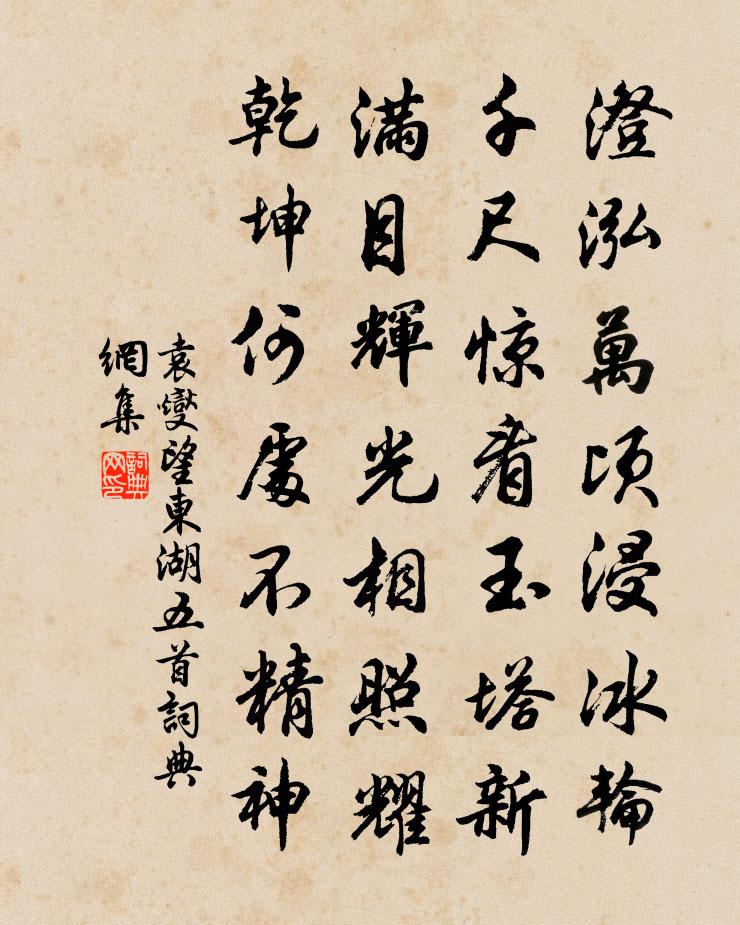 澄泓萬頃浸冰輪
千尺惊看玉塔新
滿目輝光相照耀
乾坤何處不精神
袁燮望東湖五首詞典
網集
詞典
网印